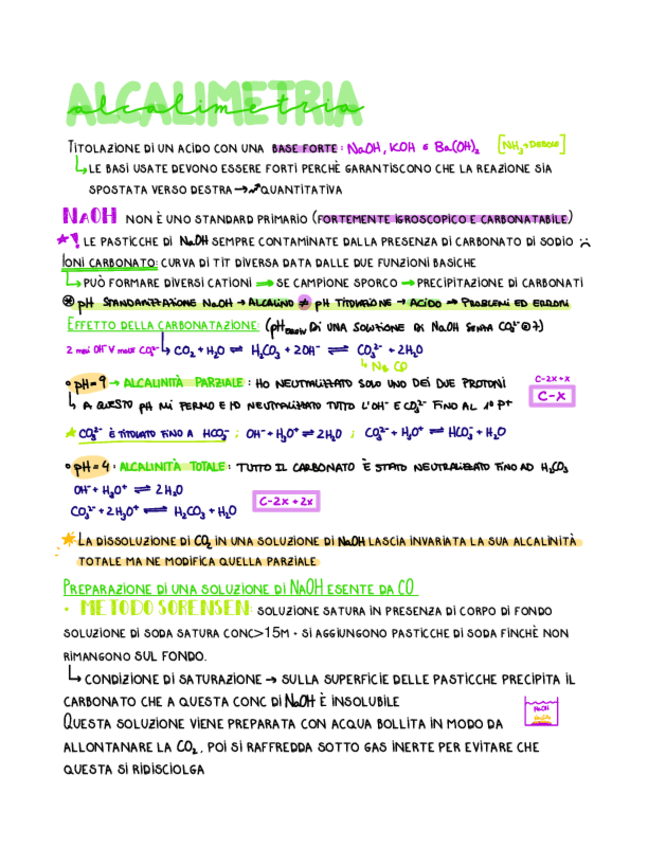 ALCALIMETRIA
alcalimetria
TITOLAZIONE DI UN ACIDO CON UNA BASE FORTE: NaOH, KOH e Ba(OH)₂ [NH₃→DEBOLE]
↳ LE BASI USATE DEVONO ESSERE FORTI PERCHÈ GARANTISCONO CHE LA REAZIONE SIA
SPOSTATA VERSO DESTRA → QUANTITATIVA
NAOH NON È UNO STANDARD PRIMARIO (FORTEMENTE IGROSCOPICO E CARBONATABILE)
★! LE PASTICCHE DI NaOH SEMPRE CONTAMINATE DALLA PRESENZA DI CARBONATO DI SODIO :(
IONI CARBONATO: CURVA DI TIT DIVERSA DATA DALLE DUE FUNZIONI BASICHE
↳ PUÒ FORMARE DIVERSI CATIONI → SE CAMPIONE SPORCO → PRECIPITAZIONE DI CARBONATI
⊗ pH STANDARDIZZAZIONE NaOH → ALCALINO ≠ pH TITOLAZIONE → ACIDO → PROBLEMI ED ERRORI
EFFETTO DELLA CARBONATAZIONE: (pH DI UNA SOLUZIONE DI NaOH SENZA CO₃²⁻ 7)
2 moli OH⁻ V moli CO₃²⁻ ↳ CO₂ + H₂O ⇌ H₂CO₃ + 2OH⁻ ⇌ CO₃²⁻ + 2H₂O
↳ Na CO
• pH=9 → ALCALINITÀ PARZIALE: HO NEUTRALIZZATO SOLO UNO DEI DUE PROTONI
C-2x+x
↳ A QUESTO PH MI FERMO E HO NEUTRALIZZATO TUTTO L'OH⁻ E CO₃²⁻ FINO AL 1° P+
C-X
★ CO₃²⁻ È TITOLATO FINO A HCO₃⁻; OH⁻ + H₃O⁺ ⇌ 2H₂O ; CO₃²⁻ + H₃O⁺ ⇌ HCO₃⁻ + H₂O
• pH=4: ALCALINITÀ TOTALE: TUTTO IL CARBONATO È STATO NEUTRALIZZATO FINO AD H₂CO₃
OH⁻ + H₃O⁺ ⇌ 2H₂O
C-2x+2x
CO₃²⁻ + 2H₃O⁺ ⇌ H₂CO₃ + H₂O
★ LA DISSOLUZIONE DI CO₂ IN UNA SOLUZIONE DI NaOH LASCIA INVARIATA LA SUA ALCALINITÀ
TOTALE MA NE MODIFICA QUELLA PARZIALE
PREPARAZIONE DI UNA SOLUZIONE DI NaOH ESENTE DA CO
• METODO SORENSEN: SOLUZIONE SATURA IN PRESENZA DI CORPO DI FONDO
SOLUZIONE DI SODA SATURA CONC>15M - SI AGGIUNGONO PASTICCHE DI SODA FINCHÈ NON
RIMANGONO SUL FONDO.
↳ CONDIZIONE DI SATURAZIONE → SULLA SUPERFICIE DELLE PASTICCHE PRECIPITA IL
CARBONATO CHE A QUESTA CONC DI NaOH È INSOLUBILE
NaOH
QUESTA SOLUZIONE VIENE PREPARATA CON ACQUA BOLLITA IN MODO DA
ALLONTANARE LA CO₂, POI SI RAFFREDDA SOTTO GAS INERTE PER EVITARE CHE
QUESTA SI RIDISCIOLGA